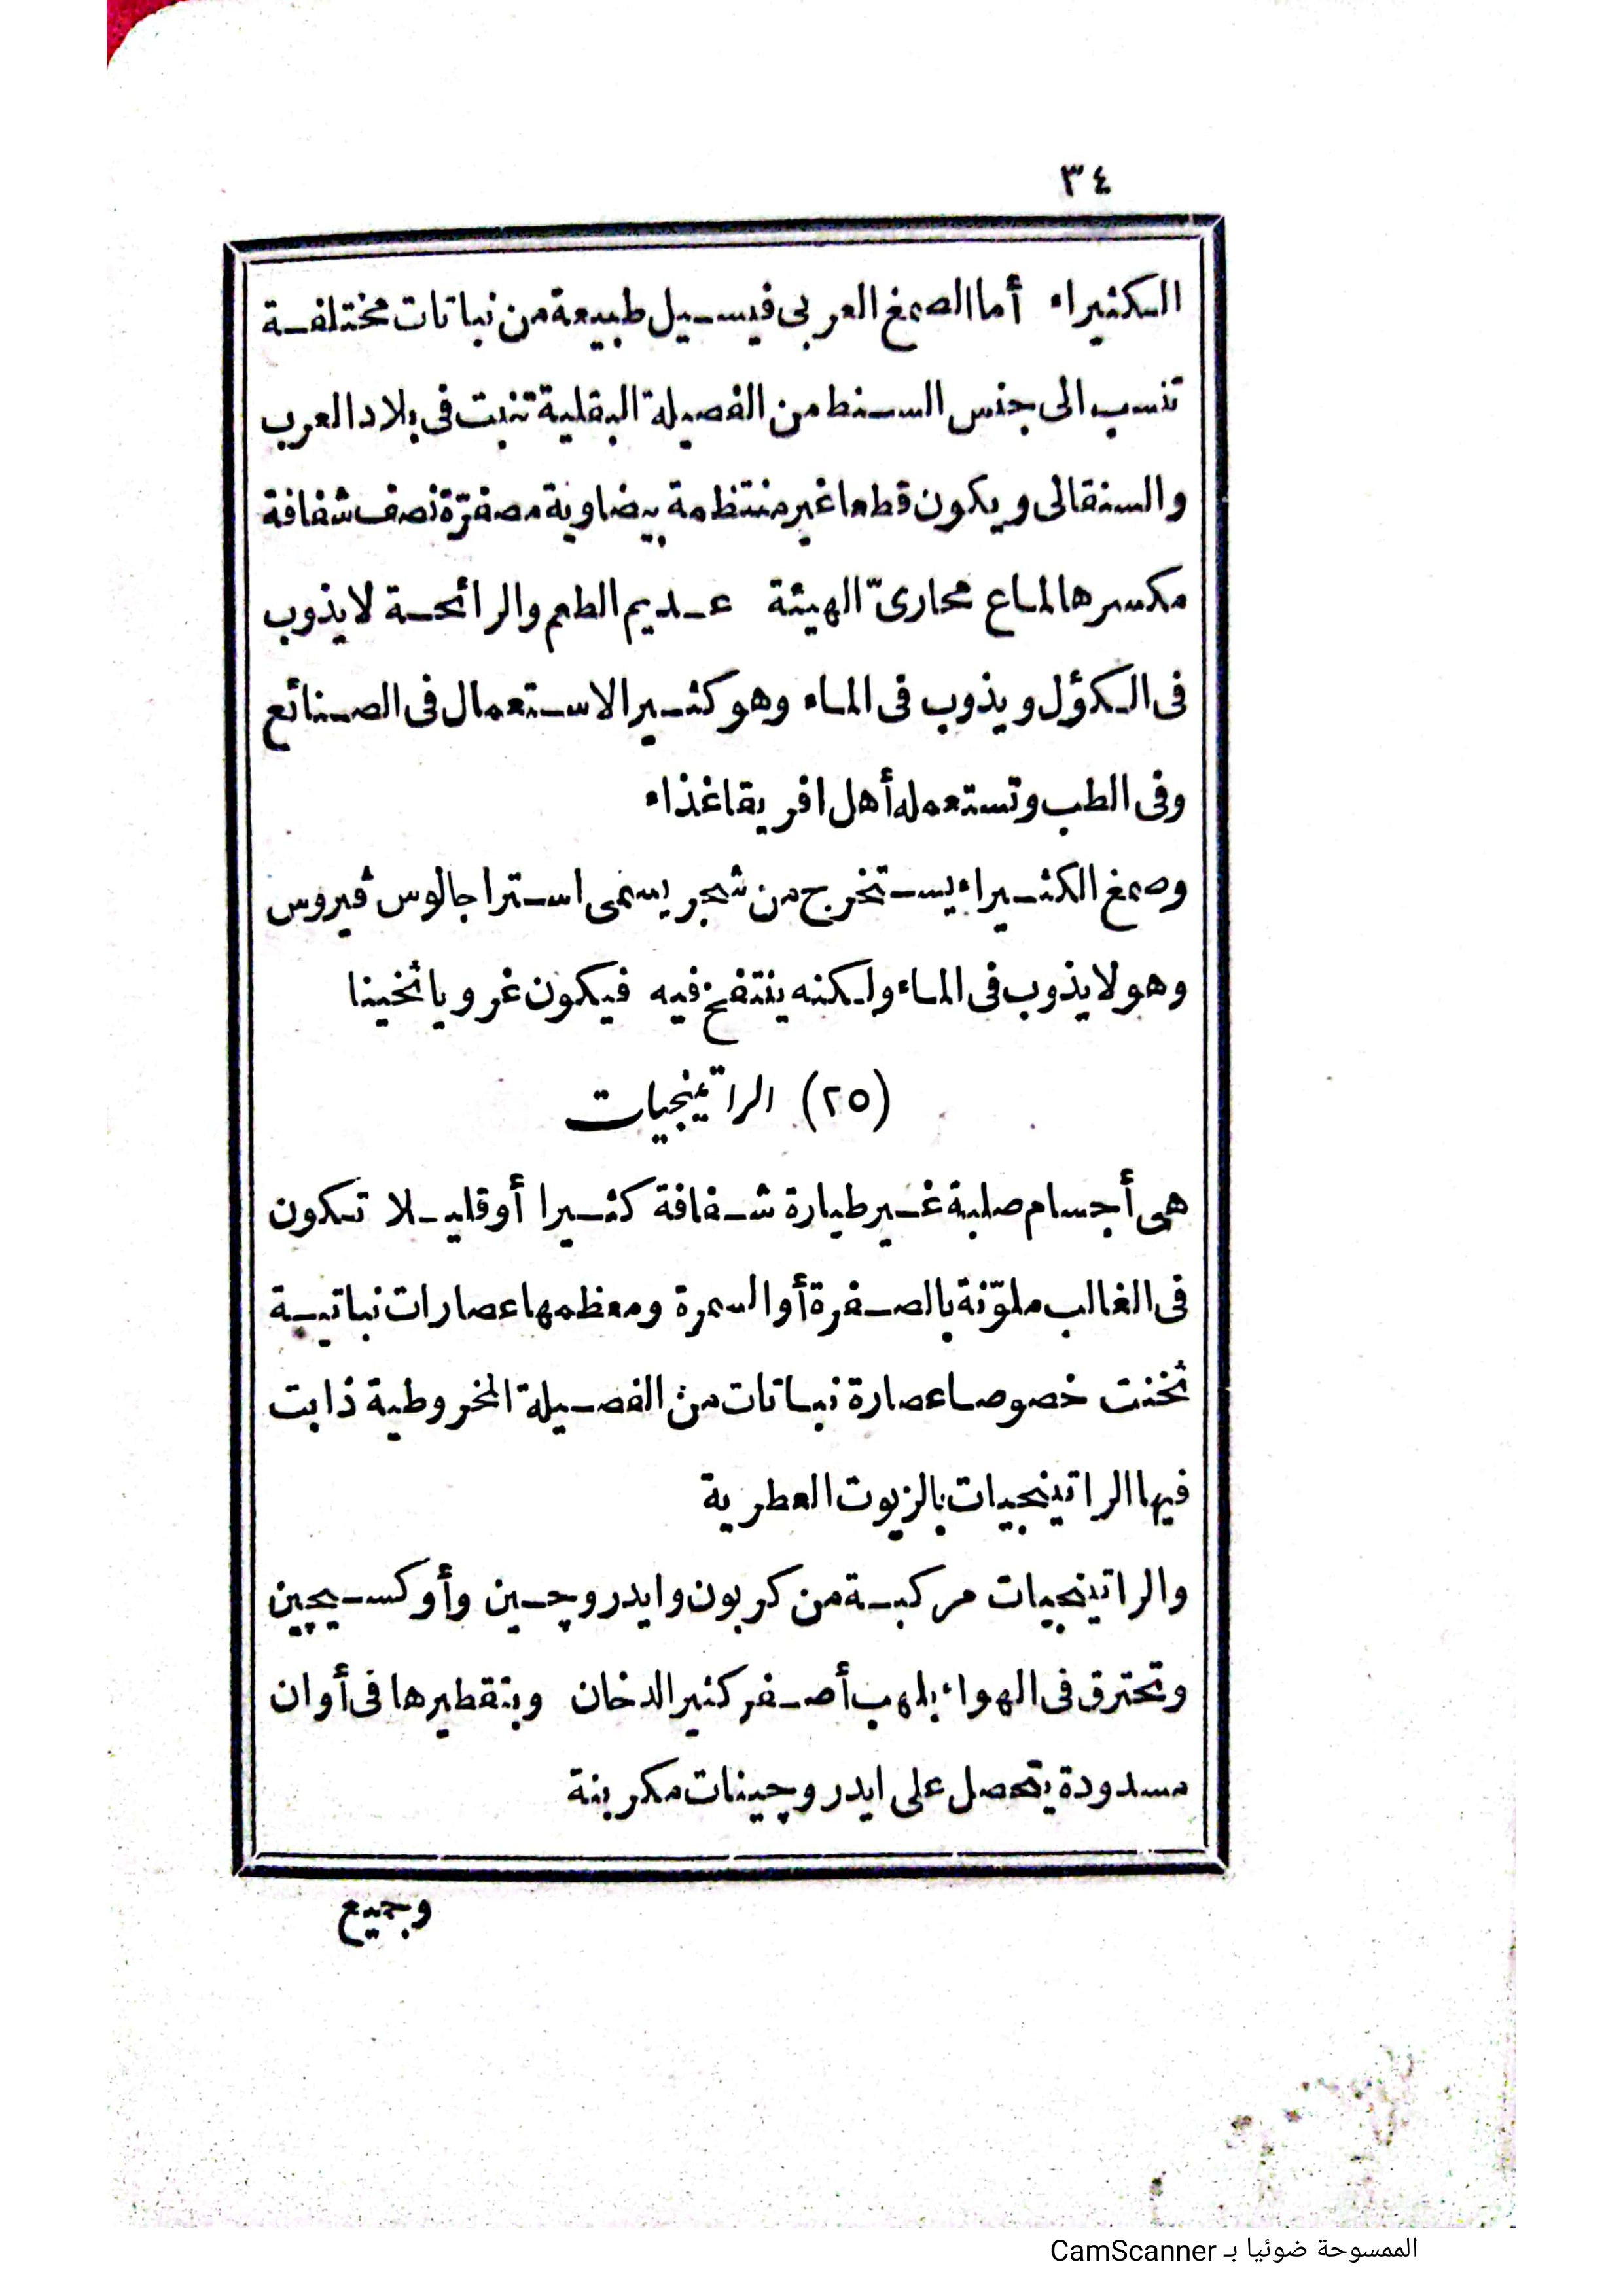 ٣٤
الكثيراء أما الصمغ العربى فيسيل طبيعة من نباتات مختلفة
تنسب الى جنس السنط من الفصيلة البقلية تنبت فى بلاد العرب
والسنقالى ويكون قطعا غير منتظمة بيضاوية مصفرّة نصف شفافة
مكسرها لماع محارىّ الهيئة عديم الطعم والرائحة لا يذوب
فى الكؤل ويذوب فى الماء وهو كثير الاستعمال فى الصنائع
وفى الطب وتستعمله أهل افريقا غذاء
وصمغ الكثيراء يستخرج من شجر يسمى استراجالوس ڤيروس
وهو لا يذوب فى الماء ولكنه ينتفخ فيه فيكون غرويا ثخينا
(٢٥) الراتينجيات
هى أجسام صلبة غير طيارة شفافة كثيرا أو قليلا تكون
فى الغالب ملوّنة بالصفرة أو السمرة ومعظمها عصارات نباتية
ثخنت خصوصا عصارة نباتات من الفصيلة المخروطية ذابت
فيها الراتينجيات بالزيوت العطرية
والراتينجيات مركبة من كربون وايدروچين وأوكسيچين
وتحترق فى الهواء بلهب أصفر كثير الدخان وبتقطيرها فى أوان
مسدودة يتحصل على ايدروچينات مكربنة
وجميع
الممسوحة ضوئيا بـ CamScanner